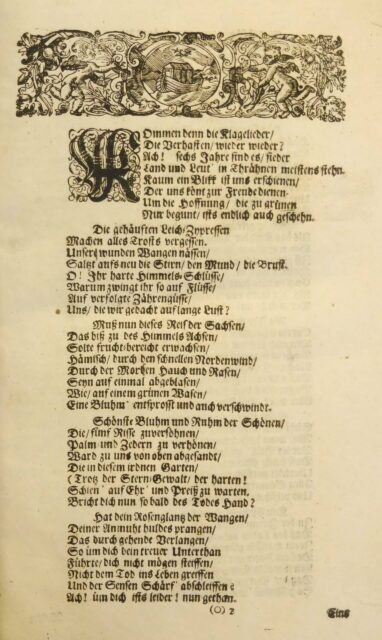 KOmmen denn die Klagelieder/
Die Verhasten/ wieder wieder?
Ach! sechs Jahre sind es/ sieder
Land und Leut' in Thrähnen meistens stehn.
Kaum ein Blikk ist uns erschienen/
Der uns könt zur Freude dienen.
Um die Hoffnung/ die zu grünen
Nur begunt/ ists endlich auch geschehn.
Die gehäufften Leich-Zypressen
Machen alles Trosts vergessen.
Unsere wunden Wangen nässen/
Saltzt aufs neu die Stirn/ den Mund/ die Brust.
O! Ihr harte Himmels-Schlüsse/
Warum zwingt ihr so auf Flüsse/
Auf verfolgte Zährengüsse/
Uns/ die wir gedacht auf lange Lust?
Muß nun dieses Reis der Sachsen/
Das biß zu des Himmels Achsen/
Solte frucht-bereicht erwachsen/
Hämisch/ durch den schnellen Nordenwind/
Durch der Morben Hauch und Rasen/
Seyn auf einmal abgeblasen/
Wie/ auf einem grünen Wasen/
Eine Bluhm' entsprosst und auch verschwindt.
Schönste Bluhm und Ruhm der Schönen/
Die/ fünf Risse zuversöhnen/
Palm- und Zedern zu verhönen/
Ward zu uns von oben abgesandt/
Die in diesem irdnen Garten/
(Trotz der Stern-Gewalt/ der harten!
Schien' auf Ehr' und Preiß zu warten.
Bricht dich nun so bald des Todes Hand?
Hat dein Rosenglantz der Wangen/
Deiner Anmuht huldes prangen/
Das durchgehende Verlangen/
So üm dich dein treuer Unterthan
Führte/ dich nicht mögen steiffen/
Nicht dem Tod ins Leben greiffen
Und der Sensen Schärf' abschleiffen?
Ach! üm dich ists leider! nun gethan.
(o) 2
Eins